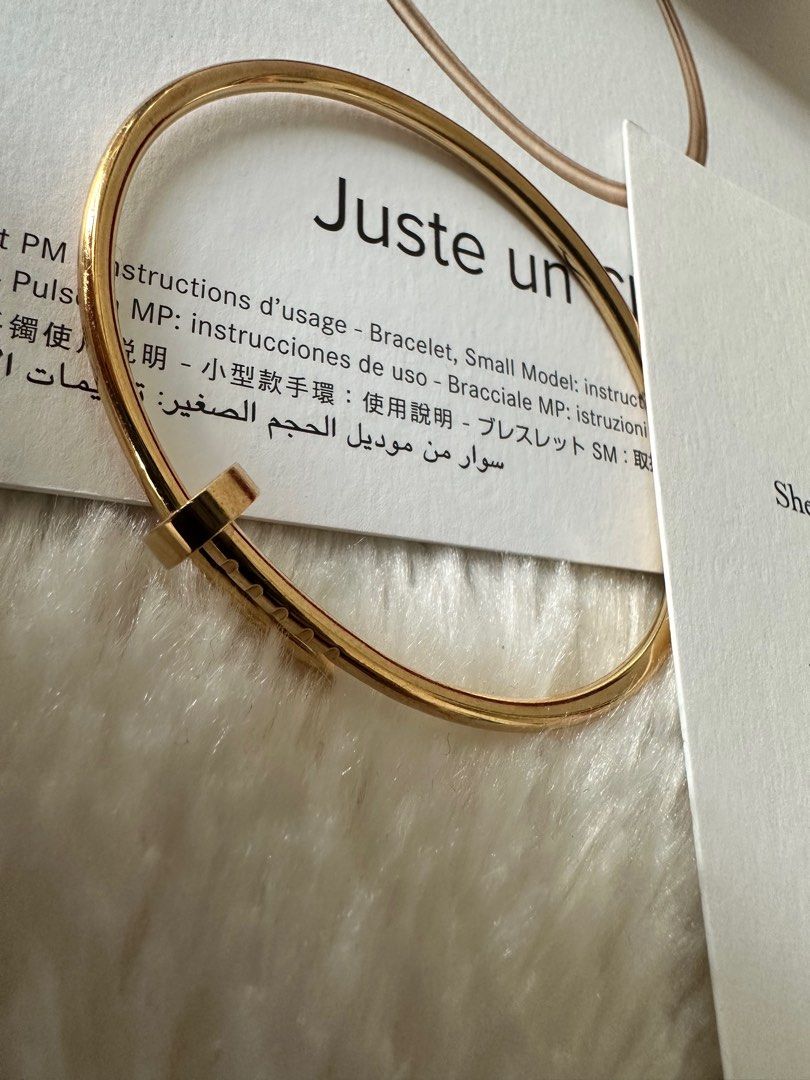 Juste un
t PM nstructions d'usage - Bracelet, Small Model: instruct
Puls MP: instrucciones de uso - Bracciale MP: istruzioni
镯使 说明 - 小型款手環：使用說明 - ブレスレット SM：取
سوار من موديل الحجم الصغير:
She